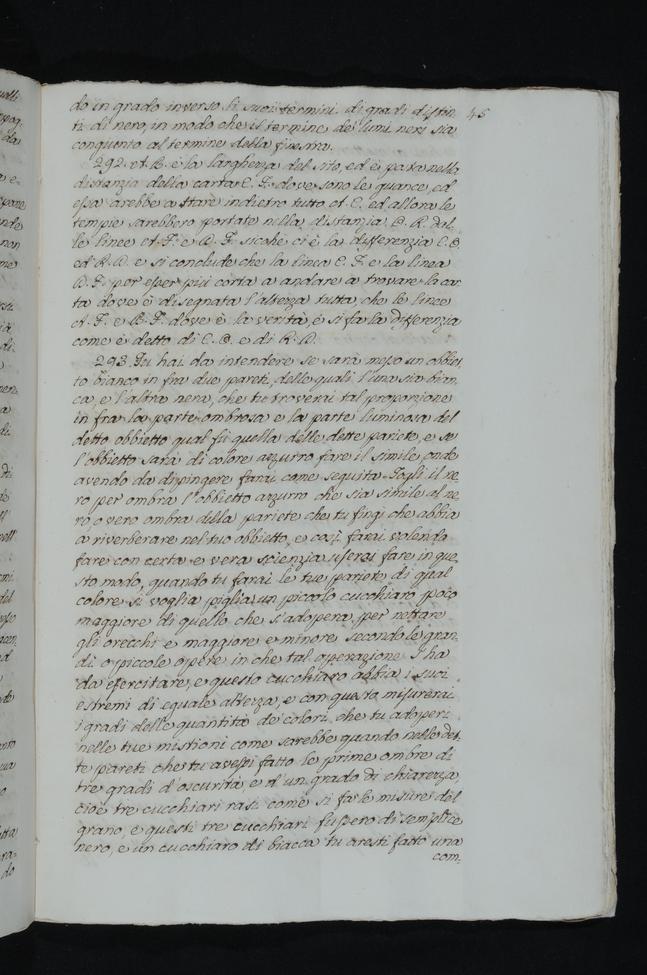 do in grado inverso li suoi termini di gradi distin- 45
ti di nero, in modo che il termine de lumi neri sia
congiunto al termine della finestra.
292. A. B. è la larghezza del sito, ed è posta nella
distanzia della carta C. F. dove sono le guance, ed
essa arebbe a stare indietro tutto A. C. ed allora le
tempie sarebbero portate nella distanzia O. R. dal-
le linee A. F. e B. F. sicche ci è la differenzia C. O.
ed R. D. e si conclude che la linea C. F. e la linea
D. F. per esser più corta a andare a trovare la car-
ta dove è disegnata l'altezza tutta, che le linee
A. F. e B. F. dove è la verità, e si fa la differenzia
come è detto di C. O. e di R. D.
293. Tu hai da intendere se sarà messo un obbiet-
to bianco in fra due pareti, delle quali l'una sia bian-
ca, e l'altra nera, che tu troverai tal proporzione
in fra la parte ombrosa e la parte luminosa del
detto obbietto qual fu quella delle dette pariete, e se
l'obbietto sarà di colore azzurro fare il simile, onde
avendo da dipingere farai come seguita. Togli il ne-
ro per ombrà l'obbietto azzurro che sia simile al ne-
ro, o vero ombra della pariete che tu fingi che abbia
a riverberare nel tuo obbietto, e così farai volendo
fare con certa e vera scienzia userai fare in que-
sto modo, quando tu farai le tue pariete di qual
colore si voglia piglia un piccolo cucchiaro poco
maggiore di quello che s'adopera per nettare
gli orecchi e maggiore e minore secondo le gran-
di, o piccole opere in che tal operazione s'ha
da esercitare, e questo cucchiaro abbia i suoi
estremi di equale altezza, e con questo misurerai
i gradi delle quantità de colori che tu adoperi
nelle tue mistioni come sarebbe quando nelle det-
te pareti che tu avessi fatto le prime ombre di
tre gradi d'oscurità e d'un grado di chiarezza,
cioè tre cucchiari rasi come si fa le misure del
grano, e questi tre cucchiari fussero di semplice
nero, e un cucchiaro di biacca tu aresti fatto una
com-